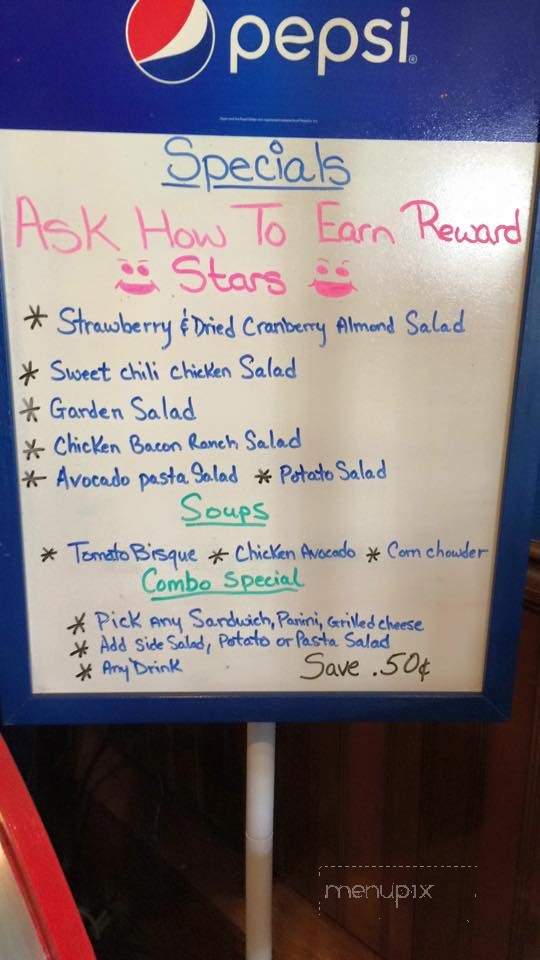 pepsi
Specials
Ask How To Earn Reward
Stars
* Strawberry & Dried Cranberry Almond Salad
* Sweet chili chicken Salad
* Garden Salad
* Chicken Bacon Ranch Salad
* Avocado pasta Salad * Potato Salad
Soups
* Tomato Bisque * Chicken Avocado * Corn chowder
Combo Special
* Pick Any Sandwich, Panini, Grilled cheese
* Add Side Salad, Potato or Pasta Salad
* Any Drink Save .50¢
menupix